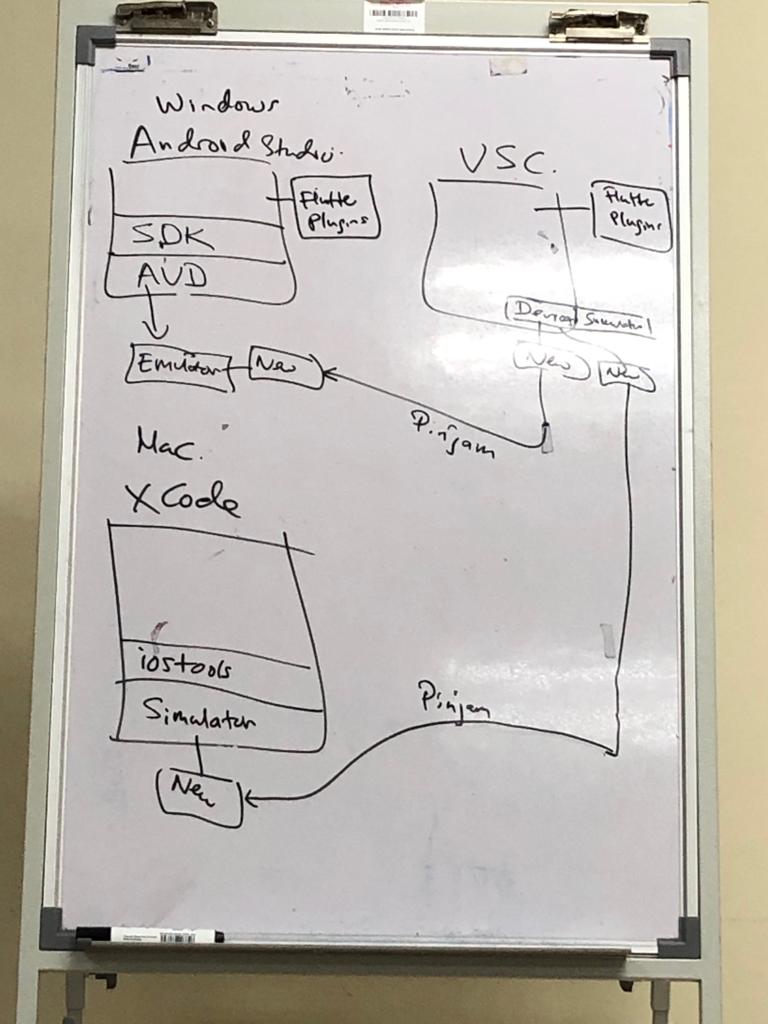 Windows
Android Studio.
Flutte
Plugins
SDK
AVD
Emulator
New
VSC.
Flutte
Plugins
Device Simulator
New
New
Pinjam
Mac.
XCode
iostools
Simulator
New
Pinjam